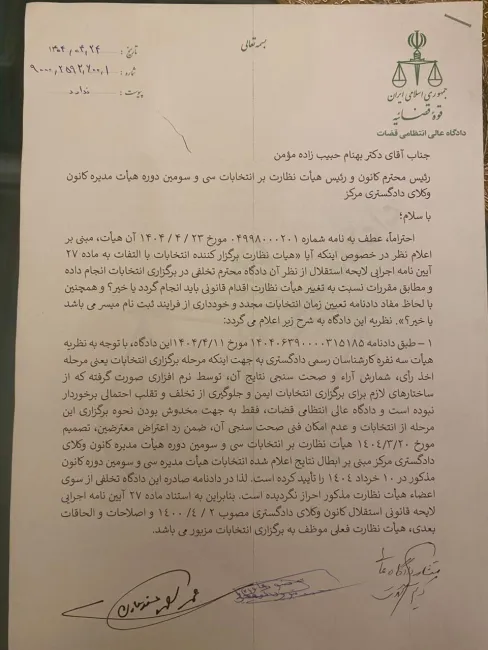 بسمه تعالی
تاریخ : ۱۴۰۴/۰۴/۲۴
شماره : ۹۰۰۰/۲۵۹۲/۲۰۰/۱
پیوست : ندارد
جمهوری اسلامی ایران
قوه قضائیه
دادگاه عالی انتظامی قضات
جناب آقای دکتر بهنام حبیب زاده مؤمن
رئیس محترم کانون و رئیس هیأت نظارت بر انتخابات سی و سومین دوره هیأت مدیره کانون
وکلای دادگستری مرکز
با سلام؛
احتراماً، عطف به نامه شماره ۰۴۹۹۸۰۰۰۲۰۱ مورخ ۲۳ / ۴ / ۱۴۰۴ آن هیأت، مبنی بر
اعلام نظر در خصوص اینکه آیا «هیات نظارت برگزار کننده انتخابات با التفات به ماده ۲۷
آیین نامه اجرایی لایحه استقلال از نظر آن دادگاه محترم تخلفی در برگزاری انتخابات انجام داده
و مطابق مقررات نسبت به تغییر هیأت نظارت اقدام قانونی باید انجام گردد یا خیر؟ و همچنین
با لحاظ مفاد دادنامه تعیین زمان انتخابات مجدد و خودداری از فرایند ثبت نام میسر می باشد
یا خیر؟». نظریه این دادگاه به شرح زیر اعلام می گردد:
۱ – طبق دادنامه ۱۴۰۴۰۶۳۹۰۰۰۰۳۱۵۱۸۵ مورخ ۱۴۰۴/۴/۱۱این دادگاه، با توجه به نظریه
هیأت سه نفره کارشناسان رسمی دادگستری به جهت اینکه مرحله برگزاری انتخابات یعنی مرحله
اخذ رأی، شمارش آراء و صحت سنجی نتایج آن، توسط نرم افزاری صورت گرفته که از
ساختارهای لازم برای برگزاری انتخابات ایمن و جلوگیری از تخلف و تقلب احتمالی برخوردار
نبوده است و دادگاه عالی انتظامی قضات، فقط به جهت مخدوش بودن نحوه برگزاری این
مرحله از انتخابات و عدم امکان فنی صحت سنجی آن، ضمن رد اعتراض معترضین، تصمیم
مورخ ۱۴۰۴/۳/۲۰ هیأت نظارت بر انتخابات سی و سومین دوره هیأت مدیره کانون وکلای
دادگستری مرکز مبنی بر ابطال نتایج اعلام شده انتخابات هیأت مدیره سی و سومین دوره کانون
مذکور در ۱۰ خرداد ۱۴۰۴ را تأیید کرده است. لذا در دادنامه صادره این دادگاه تخلفی از سوی
اعضاء هیأت نظارت مذکور احراز نگردیده است. بنابراین به استناد ماده ۲۷ آیین نامه اجرایی
لایحه قانونی استقلال کانون وکلای دادگستری مصوب ۲ /۴ /۱۴۰۰ و اصلاحات و الحاقات
بعدی، هیأت نظارت فعلی موظف به برگزاری انتخابات مزبور می باشد.